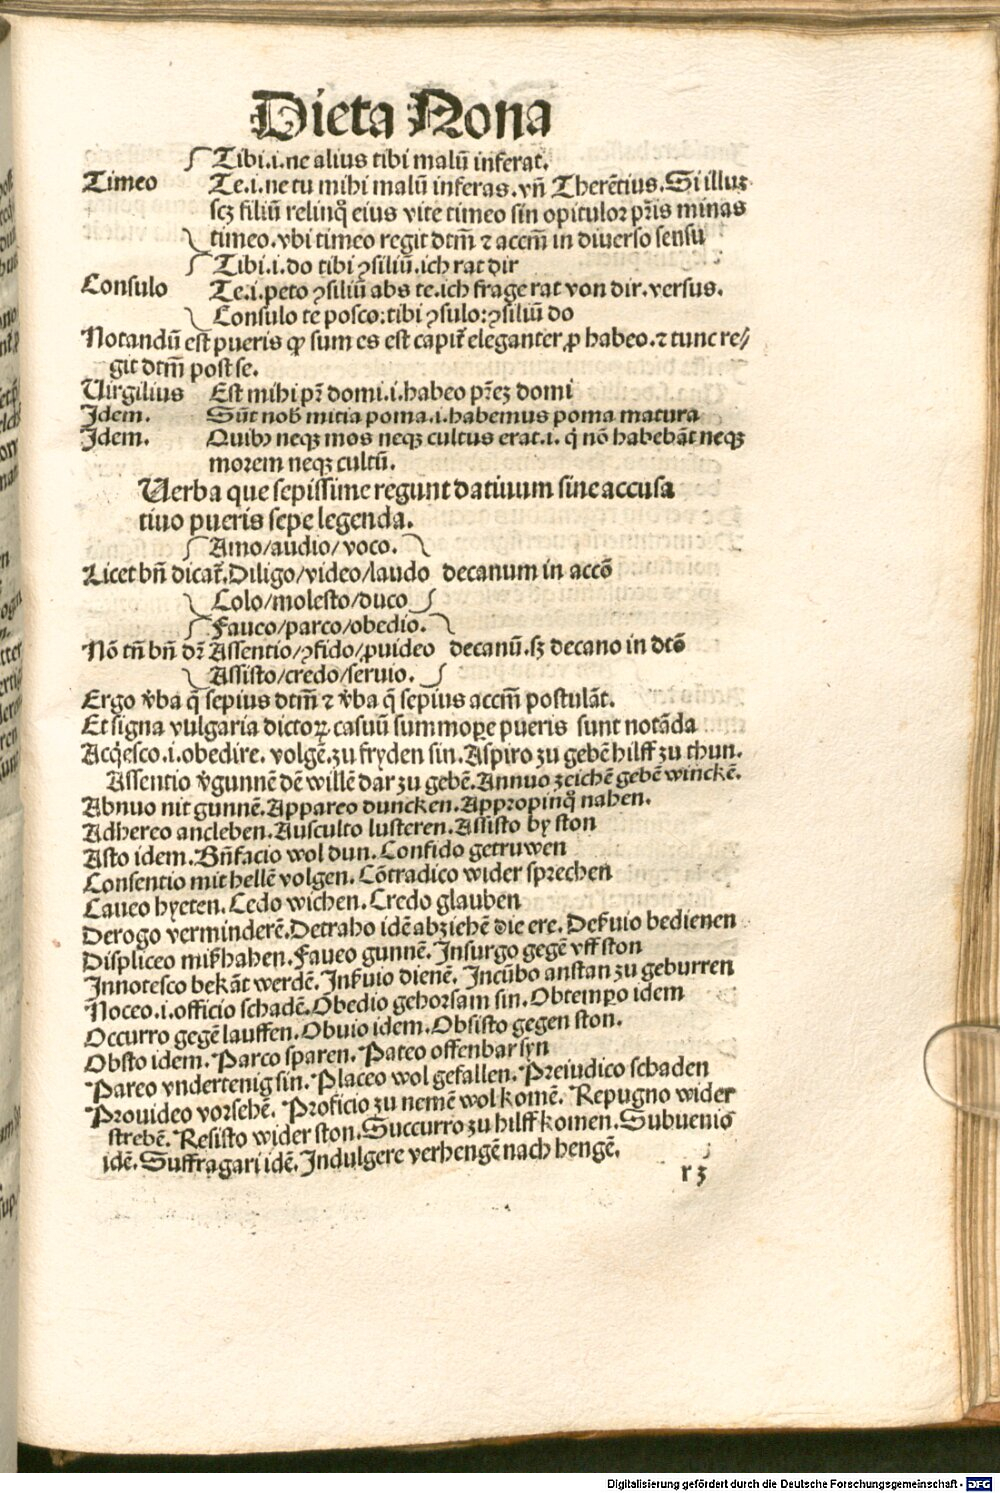 Dieta Nona
Tibi.i.ne alius tibi malū inferat.
Timeo Te.i.ne tu mihi malū inferas.vñ Therētius.Si illuꝫ
scꝫ filiū relinq̄ eius vite timeo sin opitulor pr̄is minas
timeo.vbi timeo regit dtm̄ ⁊ accm̄ in diuerso sensu
Tibi.i.do tibi ꝯsiliū.ich rat dir
Consulo Te.i.peto ꝯsiliū abs te.ich frage rat von dir.versus.
Consulo te posco:tibi ꝯsulo:ꝯsiliū do
Notandū est pueris ꝙ sum es est capit᷑ eleganter ꝓ habeo.⁊ tunc re/
git dtm̄ post se.
Uirgilius Est mihi pr̄ domi.i.habeo pr̄eꝫ domi
Idem. Sūt nob̄ mitia poma.i.habemus poma matura
Idem. Quibꝰ neqꝫ mos neqꝫ cultus erat.i. q̄ nō habebāt neqꝫ
morem neqꝫ cultū.
Uerba que sepissime regunt datiuum sine accusa
tiuo pueris sepe legenda.
Amo/audio/voco.
Licet bñ dicat᷑.Diligo/video/laudo decanum in accō
Colo/molesto/duco
Faueo/parco/obedio.
Nō tñ bñ dr̄ Assentio/ꝯfido/ꝓuideo decanū.sꝫ decano in dtō
Assisto/credo/seruio.
Ergo v̄ba q̄ sepius dtm̄ ⁊ v̄ba q̄ sepius accm̄ postulāt.
Et signa vulgaria dictoꝝ casuū summoꝑe pueris sunt notāda
Acq̄esco.i.obedire. volgē.zu fryden sin.Aspiro zu gebē hilff zu thun.
Assentio v̄gunnē dē willē dar zu gebē.Annuo zeichē gebē winckē.
Abnuo nit gunnē.Appareo duncken.Appropinq̄ nahen.
Adhereo ancleben.Ausculto lusteren.Assisto by ston
Asto idem.Bñfacio wol dun.Confido getruwen
Consentio mit hellē volgen.Cōtradico wider sprechen
Caueo hyeten.Cedo wichen.Credo glauben
Derogo verminderē.Detraho idē abziehē die ere.Des̄uio bedienen
Displiceo mis̄hahen.Faueo gunnē.Insurgo gegē vff ston
Innotesco bekāt werdē.Ins̄uio dienē.Incūbo anstan zu geburren
Noceo.i.officio schadē.Obedio gehorsam sin.Obtempo idem
Occurro gegē lauffen.Obuio idem.Obsisto gegen ston.
Obsto idem.Parco sparen.Pateo offenbar syn
Pareo vndertenig sin.Placeo wol gefallen.Preiudico schaden
Prouideo vorsehē. Proficio zu nemē wol komē. Repugno wider
strebē.Resisto wider ston.Succurro zu hilff komen.Subuenio
idē.Suffragari idē.Indulgere verhengē nach hengē.
r 3
Digitalisierung gefördert durch die Deutsche Forschungsgemeinschaft - DFG